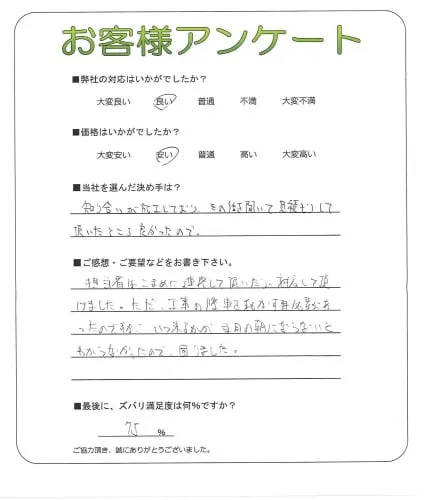 お客様アンケート
■弊社の対応はいかがでしたか？
大変良い 良い 普通 不満 大変不満
■価格はいかがでしたか？
大変安い 安い 普通 高い 大変高い
■当社を選んだ決め手は？
知り合いが施工しており、その話を聞いて見積もりして
頂いたところ良かったので。
■ご感想・ご要望などをお書き下さい。
担当者はこまめに連絡して頂いたり、対応して頂
けました。ただ、工事の際車を動かす必要があ
ったのですが、いつ来るかが当日の朝にならないと
わからなかったので、困りました。
■最後に、ズバリ満足度は何%ですか？
75 %
ご協力頂き、誠にありがとうございました。